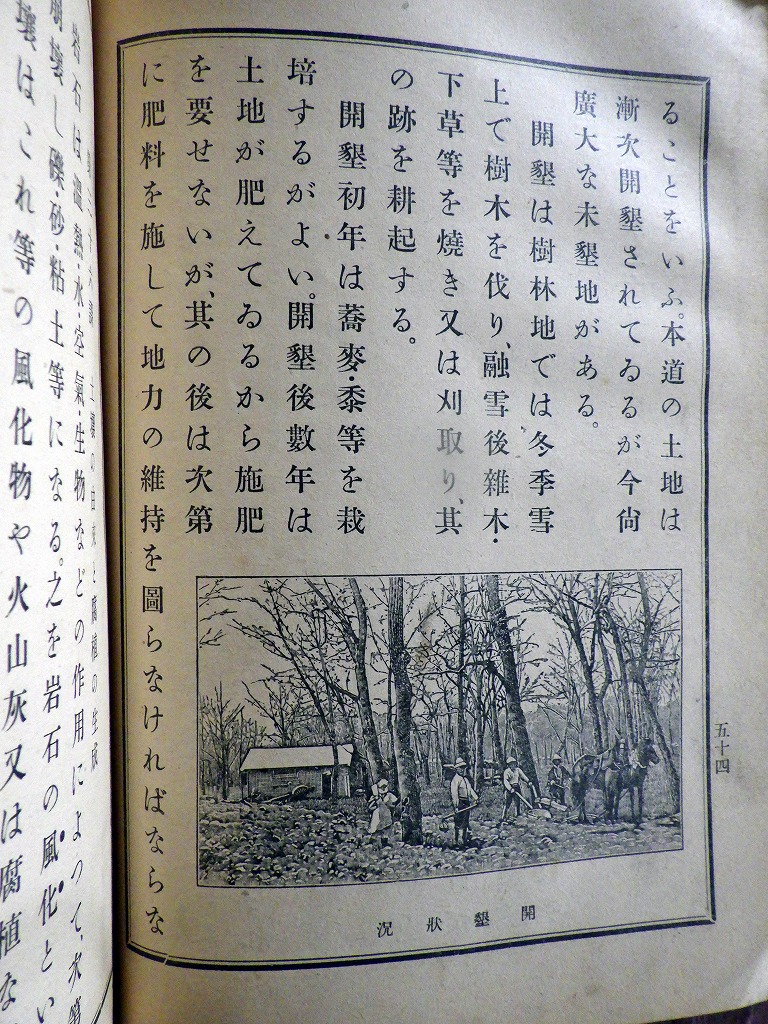 ることをいふ。本道の土地は
漸次開墾されてゐるが今尙
廣大な未墾地がある。
開墾は樹林地では冬季雪
上で樹木を伐り、融雪後雜木・
下草等を燒き又は刈取り、其
の跡を耕起する。
開墾初年は蕎麥・黍等を栽
培するがよい。開墾後數年は
土地が肥えてゐるから施肥
を要せないが、其の後は次第
に肥料を施して地力の維持を圖らなければならな
開墾狀況
五十四
土壤の由來と腐植の生成
岩石は溫熱・水・空氣・生物などの作用によつて、次第
崩壞し礫・砂・粘土等になる。之を岩石の風化とい
壤はこれ等の風化物や火山灰又は腐植な